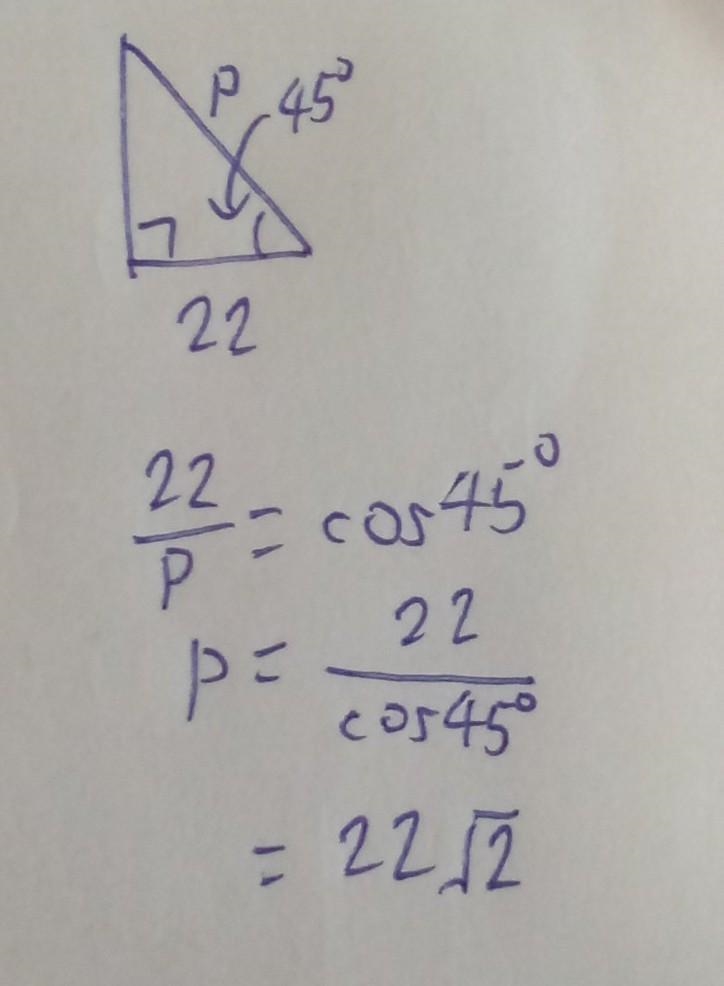 P 45°
22
22/P = cos 45°
P = 22/cos45°
= 22√2